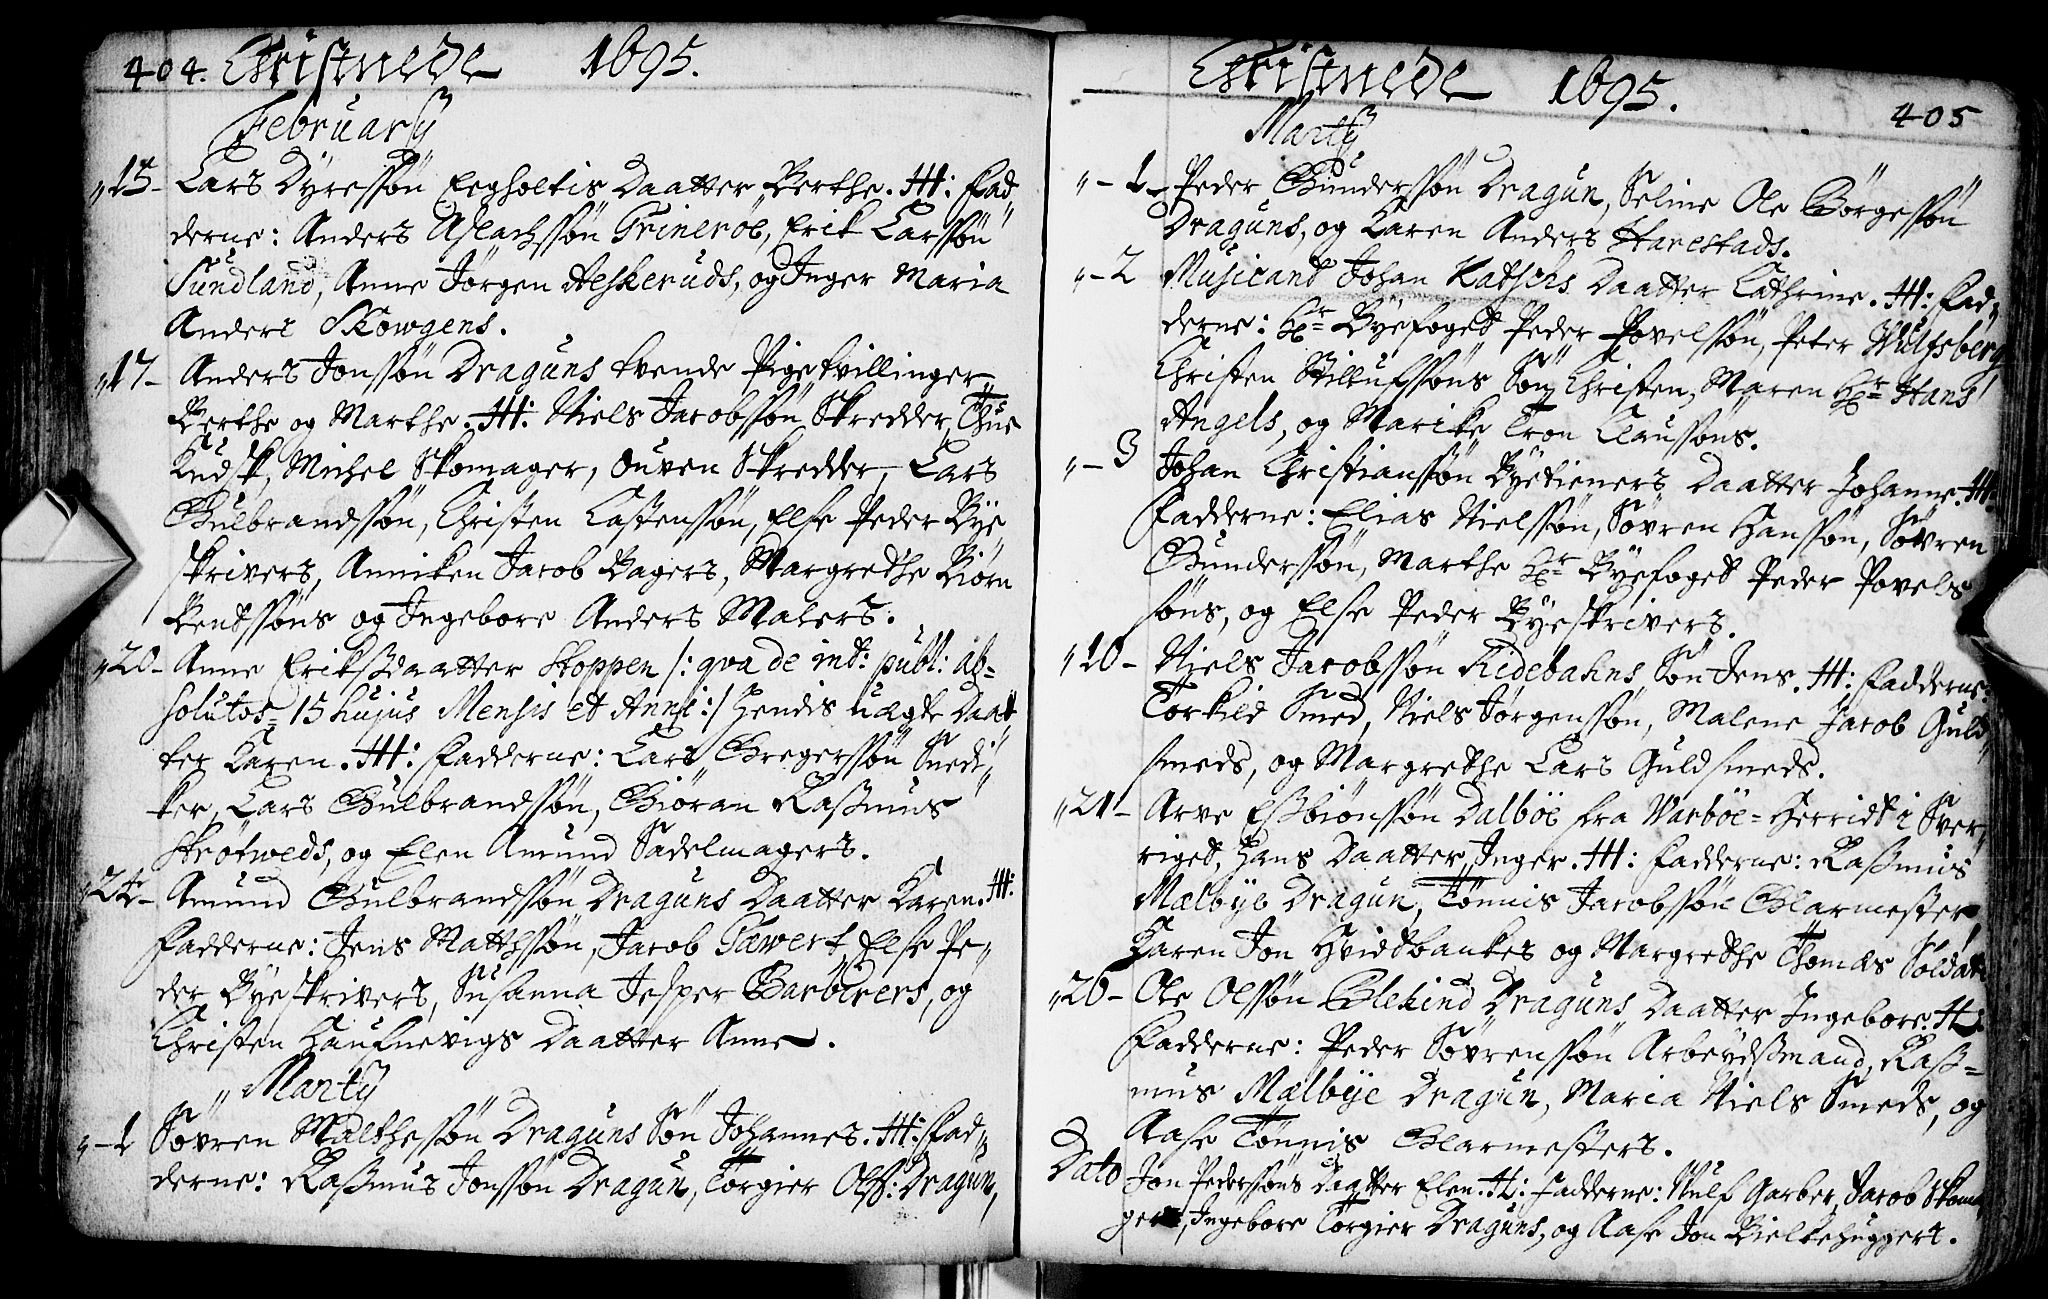 404. Christnede 1695.
Februarÿ
"15- Lars Dÿressøn Eegholtis Daatter Berthe. H: Fad,
derne: Anders Aslachssøn Trineröe, Erik Larssøn
Sundland, Anne Jørgen Aeskeruds, og Inger Maria
Anders Skowgens.
"17- Anders Jonssøn Draguns tvende Pigetvillinger
Berthe og Marthe. H: Niels Jacobssøn Skredder, Thue
Kudsk, Michel Skomager, Ouven Skredder, Lars
Gulbrandssøn, Christen Castenssøn, Else Peder Bÿe
skrivers, Anniken Jacob Bagers, Margrethe Biørn
Bentssøns og Ingebore Anders Malers.
"20- Anne Eriksdaatter Stoppen /: qva de int: publ: ab-
solutos= 15 hujus Mensis et Anni :/ hendis uægte Daat
ter Karen. H: Fadderne: Lars Gregerssøn Snedi,
ker, Lars Gulbrandssøn, Giøran Rasmus
Skrötweds, og Elen Amund Sadelmagers.
"24- Amund Gulbrandssøn Draguns Daatter Karen. H:
Fadderne: Jens Matthssøn, Jacob Tæwert, Else Pe-
der Bÿeskrivers, Susanna Jesper Barberers, og
Christen Haufnevigs Daatter Anne.
Martÿ
"-1 Søvren Malthessøn Draguns Søn Johannes. H: Fad,
derne: Rasmus Jonssøn Dragun, Torgier Olss: Dragun,
Christnede 1695. 405
Martÿ
"-1- Peder Gunderssøn Dragun, Seline Ole Børgessøn
Draguns, og Karen Anders Harestads.
"-2 Musicant Johan Katschs Daatter Cathrine. H: Fad,
derne: Hr Bÿefoget Peder Povelssøn, Peter Wulfsberg
Christen Stillufssøns Søn Christen, Maren Hr Hans
Angels, og Marike Tron Claussøns.
"-3 Johan Christianssøn Bÿetieners Daatter Johanne. H:
Fadderne: Elias Nielssøn, Søvren Hanssøn, Søvren
Gunderssøn, Marthe Hr Bÿefoget Peder Povels
søns, og Else Peder Bÿeskrivers.
"10- Niels Jacobssøn Ridebahns Søn Jens. H: Fadderne:
Torkild Smed, Niels Jørgenssøn, Malene Jacob Guld
smeds, og Margrethe Lars Guldsmeds.
"21- Arve Esbiønssøn Dalböe fra Warböe= Herridt i Sver,
riget, Hans Daatter Inger. H: Fadderne: Rasmus
Mælbÿe Dragun, Tönnis Jacobssøn Glarmester,
Karen Jon Hvidtbankes og Margrethe Thomæs Soldat
"26- Ole Olssøn Blekind Draguns Daatter Ingebore. H.
Fadderne: Peder Søvrenssøn Arbeÿdsmand, Ras=
mus Mælbÿe Dragun, Maria Niels Smeds, og
Aase Tönnis Glarmesters.
Dato Jon Pederssøns Daatter Elen. H: Fadderne: Wulf Garber, Jacob Skoma,
ger, Ingebore Torgier Draguns, og Aase Jon Bielkehuggers.